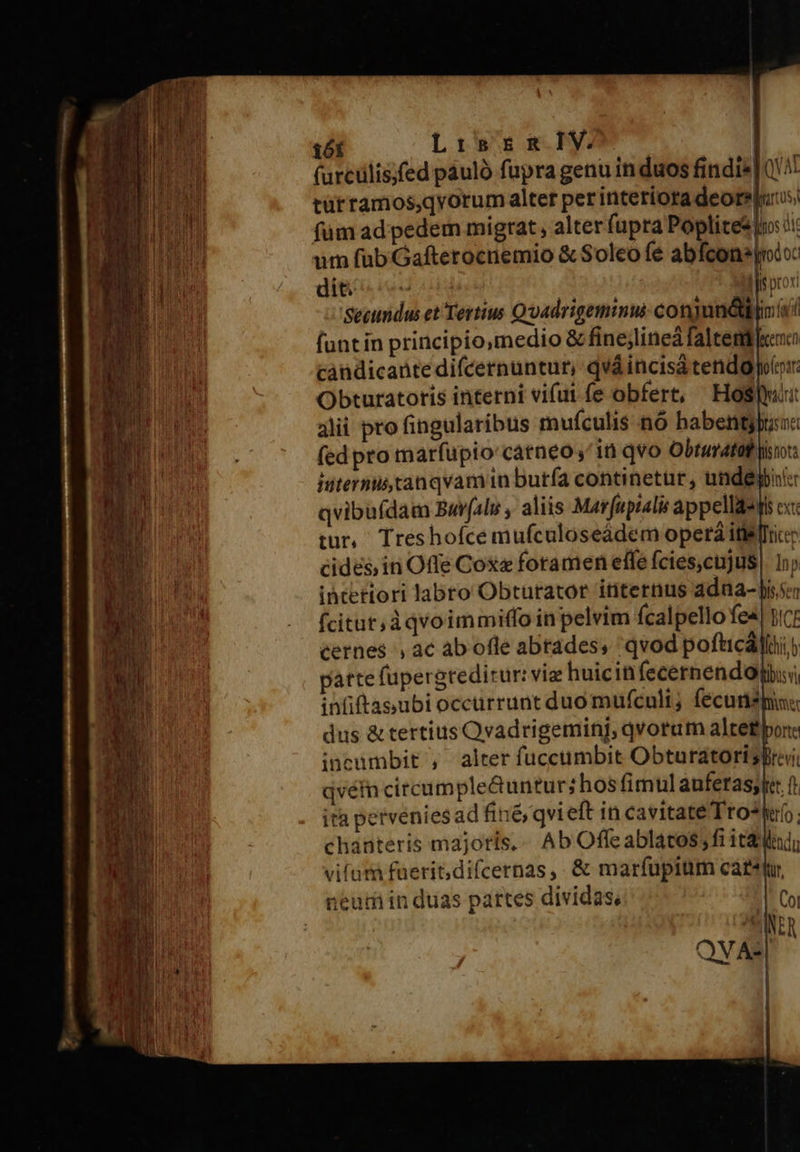 16f LIBER IV.
ſurculis,ſed paulò ſupra genu in duos findi⸗
tur ramos,qvorum alter per interiora deor⸗
ſum ad pedem migrat, alter ſupra Poplites
um ſub Gaſterocnemio & Soleo ſe abſcon⸗
dit.
Secundus et Tertius Qvadrigeminus conjuncti
ſunt in principio,medio & fine,lineâ ſaltem
candicante diſcernuntur, qvâ incisâ tendo
Obturatoris interni viſui ſe obfert. Hos
alii pro ſingularibus muſculis nó habent,
ſed pro marſupio carneo, in qvo Obturator
internus,tanqvam in burſa continetur, unde
qvibuſdam Burſalis, aliis Marſupialis appella⸗
tur. Tres hoſce muſculos eâdem operâ
cides, in Oſſe Coxæ foramen eſſe ſcies,cujus
interiori labro Obturator internus adna-
ſcitur, à qvo immiſſo in pelvim ſcalpello ſe⸗
cernes, ac ab oſſe abrades, qvod poſticâ
parte ſupergreditur: viæ huic in ſecernendo
inſiſtas,ubi occurrunt duo muſculi, ſecun⸗
dus & tertius Qvadrigemini, qvorum alter
incumbit, alter ſuccumbit Obturatori,
qvem circumplectuntur; hos ſimul auferas,
ita pervenies ad finé, qvi eſt in cavitate Tro⸗
chanteris majoris. Ab Oſſe ablatos, ſi ita
viſum fuerit,diſcernas, & marſupium car⸗
neum in duas partes dividas.
QVA-